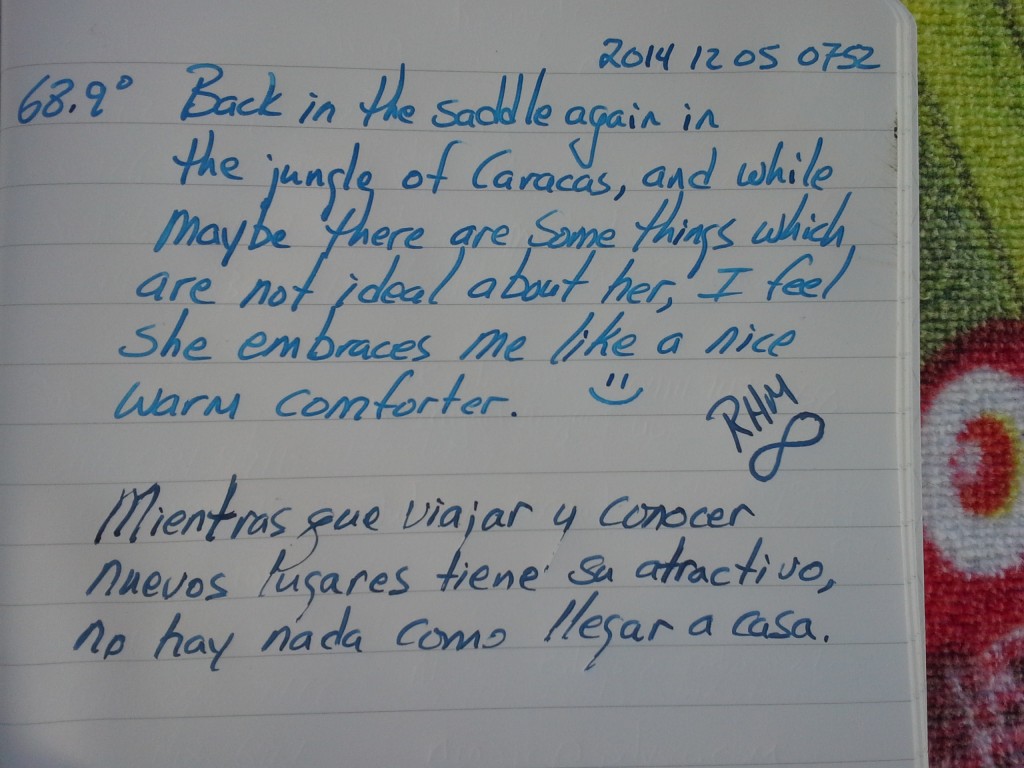 2014 12 05 0752
68.9° Back in the saddle again in
the jungle of Caracas, and while
maybe there are some things which
are not ideal about her, I feel
she embraces me like a nice
warm comforter.
RHM
Mientras que viajar y conocer
nuevos lugares tiene su atractivo,
no hay nada como llegar a casa.